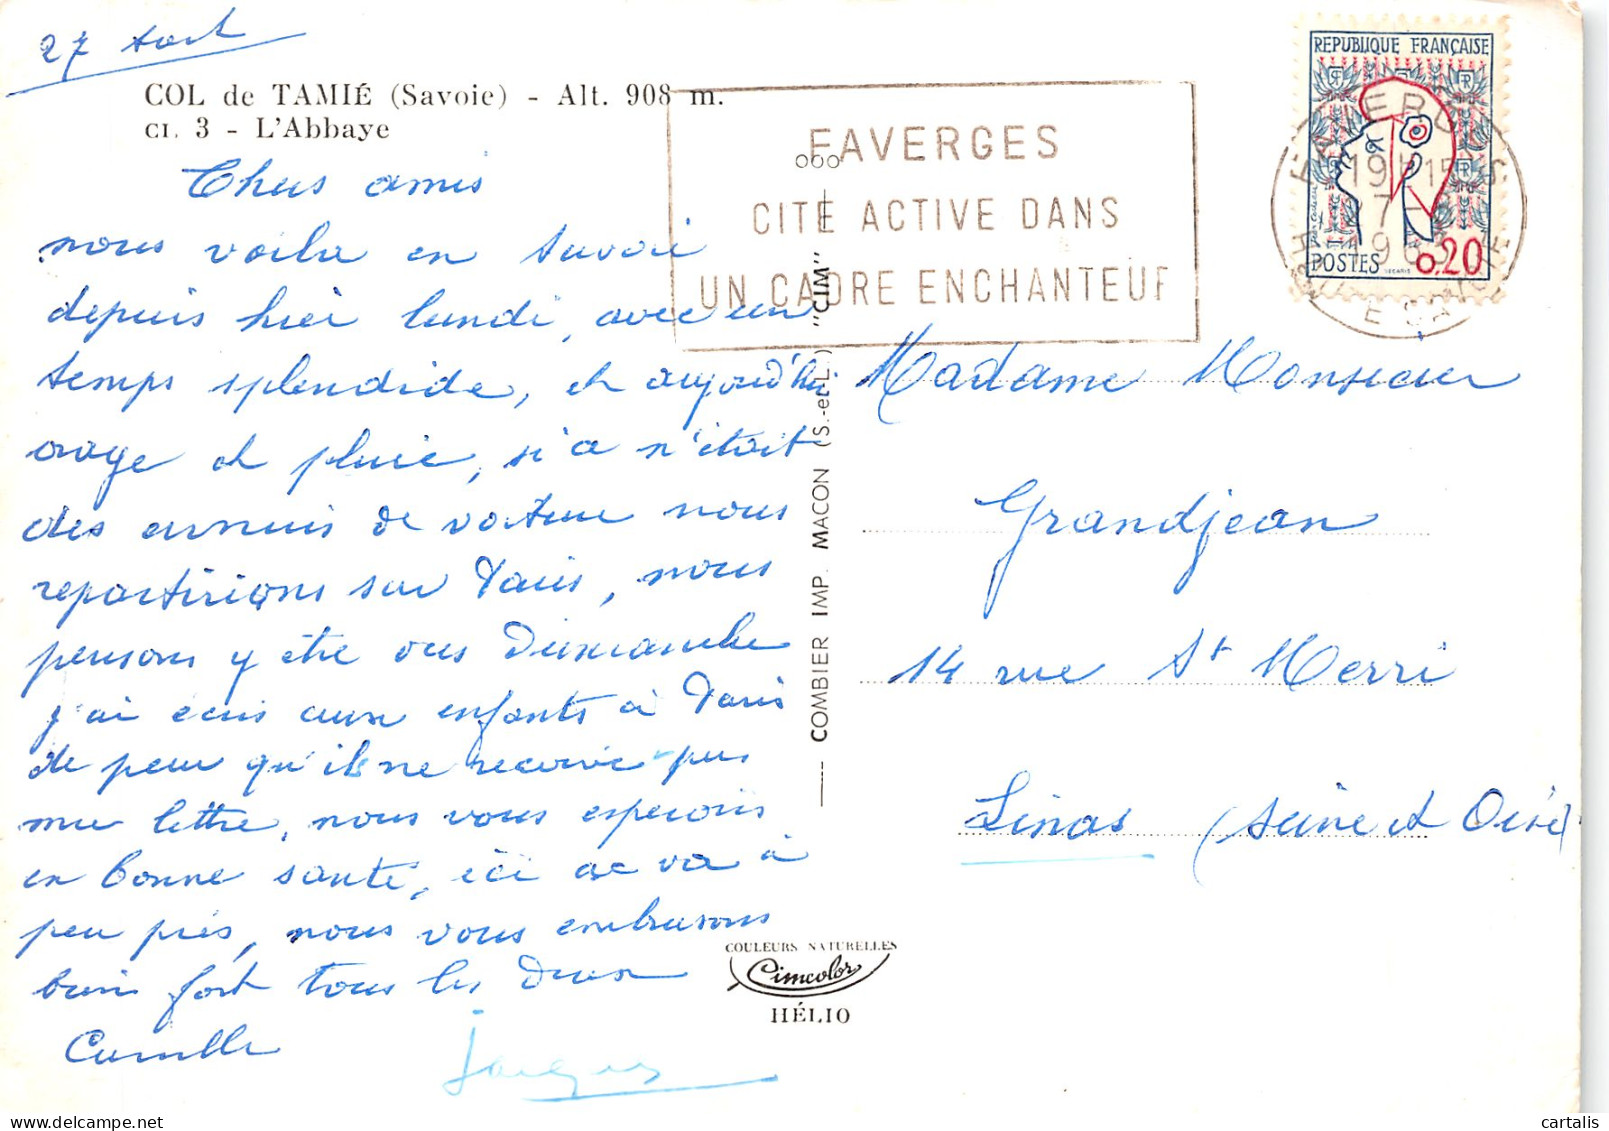 27 Aout
COL de TAMIÉ (Savoie) - Alt. 908 m.
CI. 3 - L'Abbaye
Chers amis
nous voila en Savoie
depuis hier lundi, avec un
temps splendide, et aujourd'hui
orage et pluie, si ce n'était
des ennuis de voiture nous
repartirions sur Paris, nous
pensons y être vers Dimanche
j'ai écris aux enfants à Paris
de peur qu'ils ne recoivie pas
ma lettre, nous vous esperons
en bonne santé, ici ça va à
peu près, nous vous embrassons
bien fort tous les Deux
Camille
Jacques
FAVERGES
CITE ACTIVE DANS
UN CADRE ENCHANTEUR
REPUBLIQUE FRANÇAISE
POSTES 0,20
FAVERGES
19H15
27-8
1963
HAUTE SAVOIE
COMBIER IMP. MACON (S.-et-L.) "CIM"
Madame Monsieur
Grandjean
14 rue St Merri
Linas (Seine et Oise)
COULEURS NATURELLES
Cimcolor
HÉLIO
cartalis
delcampe.net